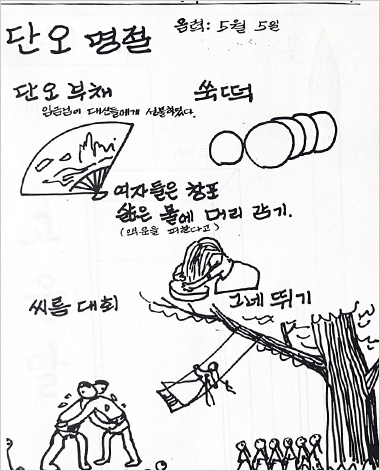 단오 명절
음력: 5월 5일
단오 부채
임금님이 대신들에게 선물하였다.
쑥떡
여자들은 창포
삶은 물에 머리 감기.
(액운을 피한다고)
씨름 대회
그네 뛰기